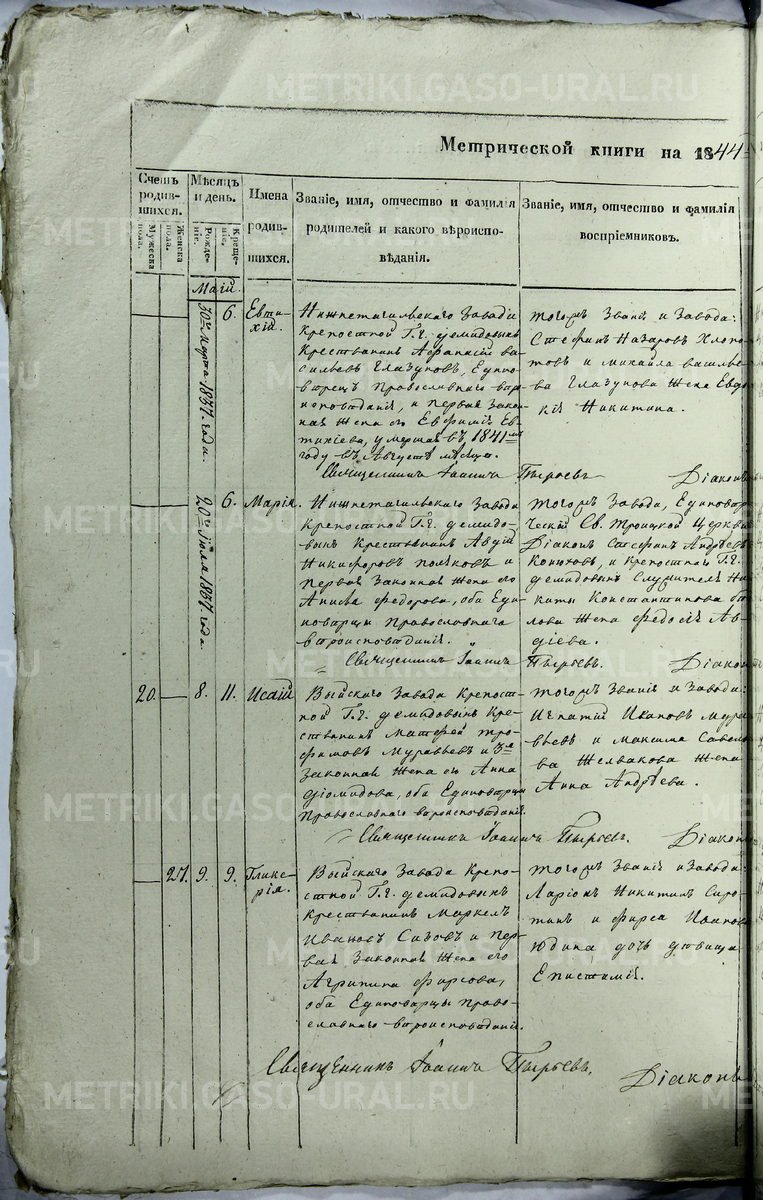 METRIKI.GASO-URAL.RU
Метрической книги на 1844
Счетъ родив-
шихся.
Мѣсяцъ
и день.
Имена
родив-
шихся.
Званіе, имя, отчество и фамилія
родителей и какого вѣроиспо-
вѣданія.
Званіе, имя, отчество и фамилія
воспріемниковъ.
Мужеска
пола.
Женска
пола.
Рожде-
ніе.
Креще-
ніе.
Маій.
30го Марта 1837. года.
6.
Евти-
хій.
Нижнетагильскаго Завода
крепостной Г.г. Демидовыхъ
Крестьянинъ Афанасій Ва-
сильевъ Глазуновъ, Едино-
вѣрецъ Православнаго вѣро-
исповѣданія, и первая закон-
ная жена его Евфимія Ев-
тихіева, умершая въ 1841мъ
году въ Августѣ мѣсяцѣ.
тогожъ Званія и Завода:
Стефанъ Назаровъ Хлопо-
товъ и Михайла Василье-
ва Глазунова жена Евдо-
кія Никитина.
Священникъ Іоаннъ Пырьевъ Діаконъ
20го Іюля 1837 года.
6.
Марія.
Нижнетагильскаго Завода
крепостной Г.г. Демидо-
выхъ Крестьянинъ Авдій
Никифоровъ Поляковъ и
первая Законная жена его
Анисья Федорова, оба Еди-
новѣрцы Православнаго
вѣроисповѣданія.
тогожъ Завода, Единовѣр-
ческой Св. Троицкой Церкви
Діаконъ Стефанъ Андреевъ
Конюховъ, и крепостнаго Г.г.
Демидовыхъ Служителя Ни-
киты Константинова
жена Федосія Ав-
діева.
Священникъ Іоаннъ Пырьевъ. Діаконъ
20.
8.
11.
Исаій
Выйскаго Завода крепост-
ной Г.г. Демидовыхъ Кре-
стьянинъ Матфей Тро-
фимовъ Муравьевъ и 3я
законная жена его Анна
Діомидова, оба Единовѣрцы
Православнаго вѣроисповѣданія.
тогожъ Званія и Завода:
Игнатій Ивановъ Мура-
вьевъ и Максима Савель-
ва Желвакова жена
Анна Андреева.
Священникъ Іоаннъ Пырьевъ. Діаконъ
27.
9.
9.
Глике-
рія.
Выйскаго Завода Крепо-
стной Г.г. Демидовыхъ
крестьянинъ Маркелъ
Ивановъ Сизовъ и пер-
вая Законная жена его
Агрипина Фирсова,
оба Единовѣрцы Право-
славнаго вѣроисповѣданія.
тогожъ Званія и Завода:
Ларіонъ Никитинъ Сиро-
тинъ и Фирса Иванова
Юдина дочь девица
Епистимія.
Священникъ Іоаннъ Пырьевъ. Діаконъ